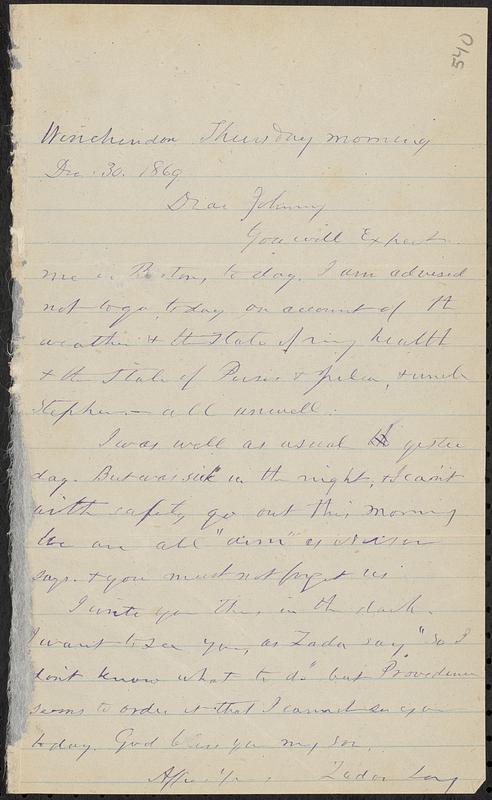 540
Winchendon Thursday morning
Dec. 30. 1869
Dear Johnny
You will Expect
me in Boston, to day. I am advised
not to go, to day on account of the
weather & the State of my health
& the State of & Julia, & uncle
Stephen — all unwell.
I was well as usual yester
day. But was sick in the night, & I can't
with safety go out this morning
We are all "dim" as
says. & you must not forget us
I write you this in the dark.
I want to see you, as Zadoc says "So I
don't know what to do" but Providence
seems to order it that I cannot see you
to day. God bless you my son.
Zadoc Long